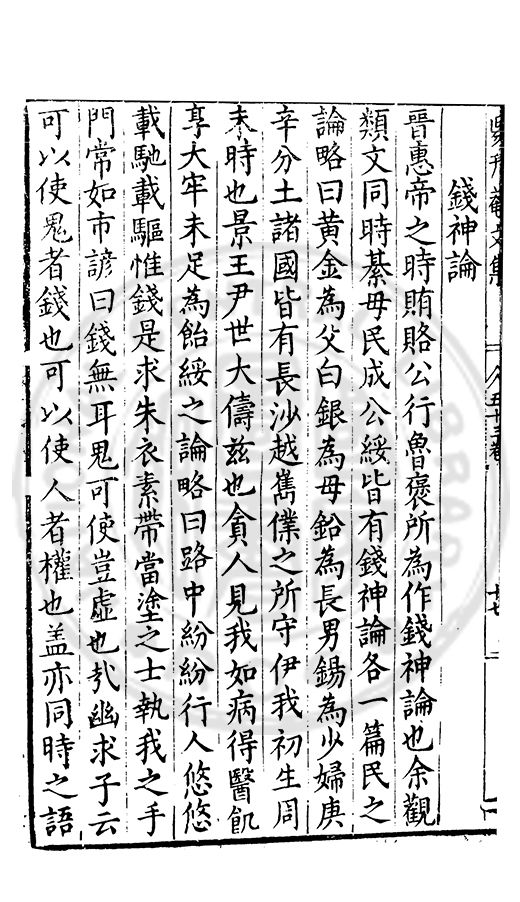 錢神論
晉惠帝之時賄賂公行魯褒所為作錢神論也余觀
類文同時綦毋民成公綏皆有錢神論各一篇民之
論略曰黃金為父白銀為母鉛為長男錫為少婦庚
辛分土諸國皆有長沙越嶲僕之所守伊我初生周
末時也景王尹世大儔茲也貪人見我如病得醫飢
享大牢未足為飴綏之論略曰路中紛紛行人悠悠
載馳載驅惟錢是求朱衣素帶當塗之士執我之手
門常如市諺曰錢無耳鬼可使豈虛也㢤幽求子云
可以使鬼者錢也可以使人者權也盖亦同時之語